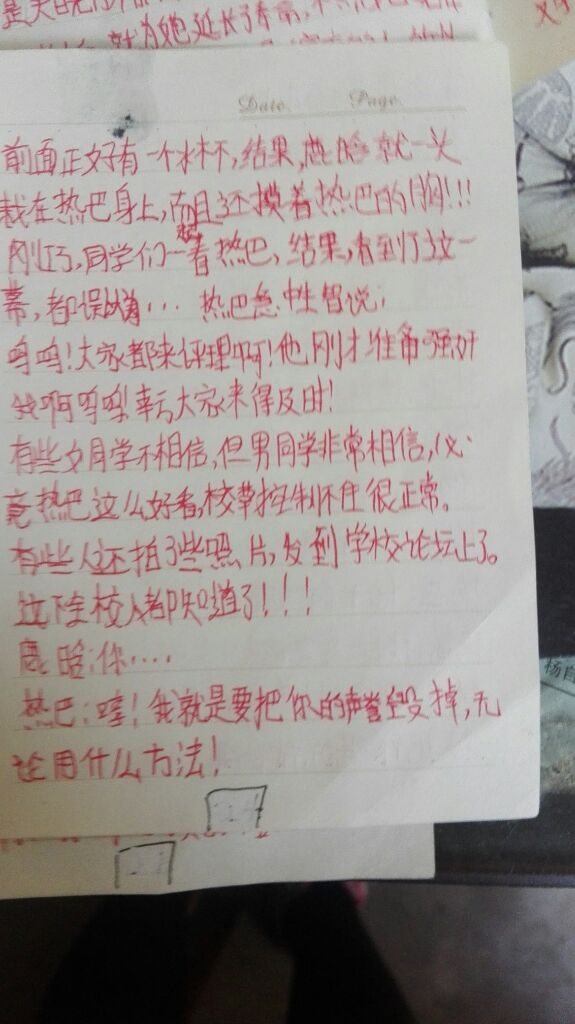 Date. Page.
前面正好有一个水杯,结果,鹿晗就一头
栽在热巴身上,而且还摸着热巴的胸!!!
刚巧,同学们一看热巴,结果,看到了这一
幕,都误会… 热巴急中生智说:
呜呜!大家都来评理啊!他刚才准备强奸
我啊呜呜!幸亏大家来得及时!
有些女同学不相信,但男同学非常相信,必
竟热巴这么好看,校草控制不住很正常。
有些人还拍了些照片,发到学校论坛上了。
这下全校人都知道了!!!
鹿晗:你....
热巴:哇!我就是要把你的声誉毁掉,无
论用什么方法!